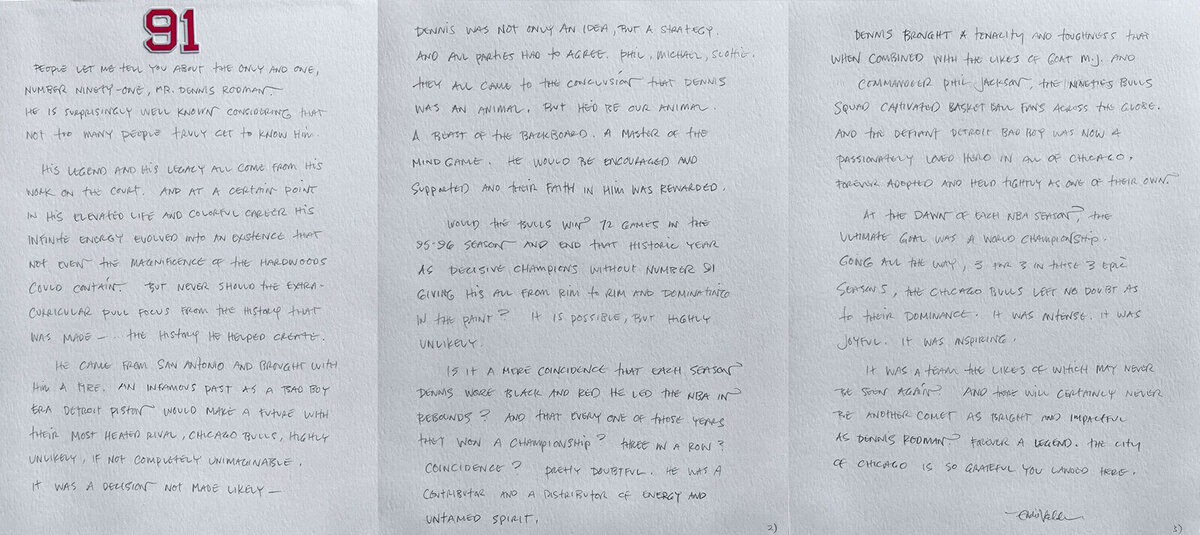 91
PEOPLE LET ME TELL YOU ABOUT THE ONLY AND ONE,
NUMBER NINETY-ONE, MR. DENNIS RODMAN.
HE IS SURPRISINGLY WELL KNOWN CONSIDERING THAT
NOT TOO MANY PEOPLE TRULY GET TO KNOW HIM.
HIS LEGEND AND HIS LEGACY ALL COME FROM HIS
WORK ON THE COURT. AND AT A CERTAIN POINT
IN HIS ELEVATED LIFE AND COLORFUL CAREER HIS
INFINITE ENERGY EVOLVED INTO AN EXISTENCE THAT
NOT EVEN THE MAGNIFICENCE OF THE HARDWOODS
COULD CONTAIN. BUT NEVER SHOULD THE EXTRA-
CURRICULAR PULL FOCUS FROM THE HISTORY THAT
WAS MADE - ... THE HISTORY HE HELPED CREATE.
HE CAME FROM SAN ANTONIO AND BROUGHT WITH
HIM A FIRE. AN INFAMOUS PAST AS A BAD BOY
ERA DETROIT PISTON WOULD MAKE A FUTURE WITH
THEIR MOST HEATED RIVAL, CHICAGO BULLS, HIGHLY
UNLIKELY, IF NOT COMPLETELY UNIMAGINABLE.
IT WAS A DECISION NOT MADE LIKELY —
DENNIS WAS NOT ONLY AN IDEA, BUT A STRATEGY.
AND ALL PARTIES HAD TO AGREE. PHIL, MICHAEL, SCOTTIE.
THEY ALL CAME TO THE CONCLUSION THAT DENNIS
WAS AN ANIMAL. BUT HE'D BE OUR ANIMAL.
A BEAST OF THE BACKBOARD. A MASTER OF THE
MIND GAME. HE WOULD BE ENCOURAGED AND
SUPPORTED AND THEIR FAITH IN HIM WAS REWARDED.
WOULD THE BULLS WIN 72 GAMES IN THE
95-96 SEASON AND END THAT HISTORIC YEAR
AS DECISIVE CHAMPIONS WITHOUT NUMBER 91
GIVING HIS ALL FROM RIM TO RIM AND DOMINATING
IN THE PAINT? IT IS POSSIBLE, BUT HIGHLY
UNLIKELY.
IS IT A MERE COINCIDENCE THAT EACH SEASON
DENNIS WORE BLACK AND RED HE LED THE NBA IN
REBOUNDS? AND THAT EVERY ONE OF THOSE YEARS
THEY WON A CHAMPIONSHIP? THREE IN A ROW?
COINCIDENCE? PRETTY DOUBTFUL. HE WAS A
CONTRIBUTOR AND A DISTRIBUTOR OF ENERGY AND
UNTAMED SPIRIT.
2)
DENNIS BROUGHT A TENACITY AND TOUGHNESS THAT
WHEN COMBINED WITH THE LIKES OF GOAT M.J. AND
COMMANDER PHIL JACKSON, THE NINETIES BULLS
SQUAD CAPTIVATED BASKETBALL FANS ACROSS THE GLOBE.
AND THE DEFIANT DETROIT BAD BOY WAS NOW A
PASSIONATELY LOVED HERO IN ALL OF CHICAGO,
FOREVER ADOPTED AND HELD TIGHTLY AS ONE OF THEIR OWN.
AT THE DAWN OF EACH NBA SEASON, THE
ULTIMATE GOAL WAS A WORLD CHAMPIONSHIP.
GOING ALL THE WAY, 3 FOR 3 IN THOSE 3 EPIC
SEASONS, THE CHICAGO BULLS LEFT NO DOUBT AS
TO THEIR DOMINANCE. IT WAS INTENSE. IT WAS
JOYFUL. IT WAS INSPIRING.
IT WAS A TEAM THE LIKES OF WHICH MAY NEVER
BE SEEN AGAIN. AND THERE WILL CERTAINLY NEVER
BE ANOTHER COMET AS BRIGHT AND IMPACTFUL
AS DENNIS RODMAN. FOREVER A LEGEND. THE CITY
OF CHICAGO IS SO GRATEFUL YOU LANDED HERE.
3)